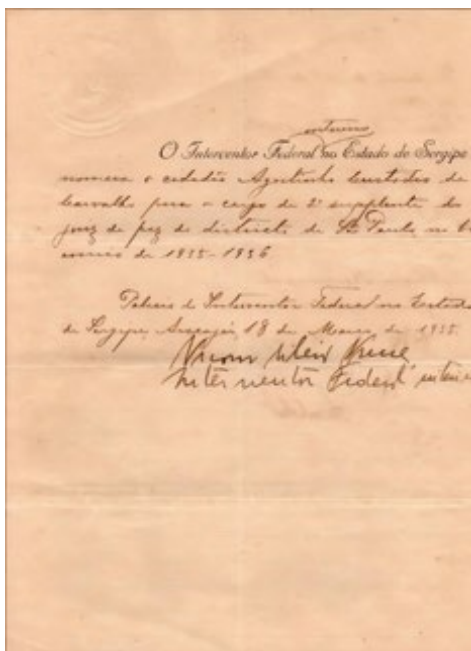 interino
O Interventor Federal no Estado de Sergipe
nomeia o cidadão Agostinho Custodio de
Carvalho para o cargo de 2º supplente do
juiz de paz do districto de S. Paulo, no
de 1935-1936
Palacio do Interventor Federal no Estado
de Sergipe, Aracajú, 18 de Março de 1935.
Interventor Federal interi